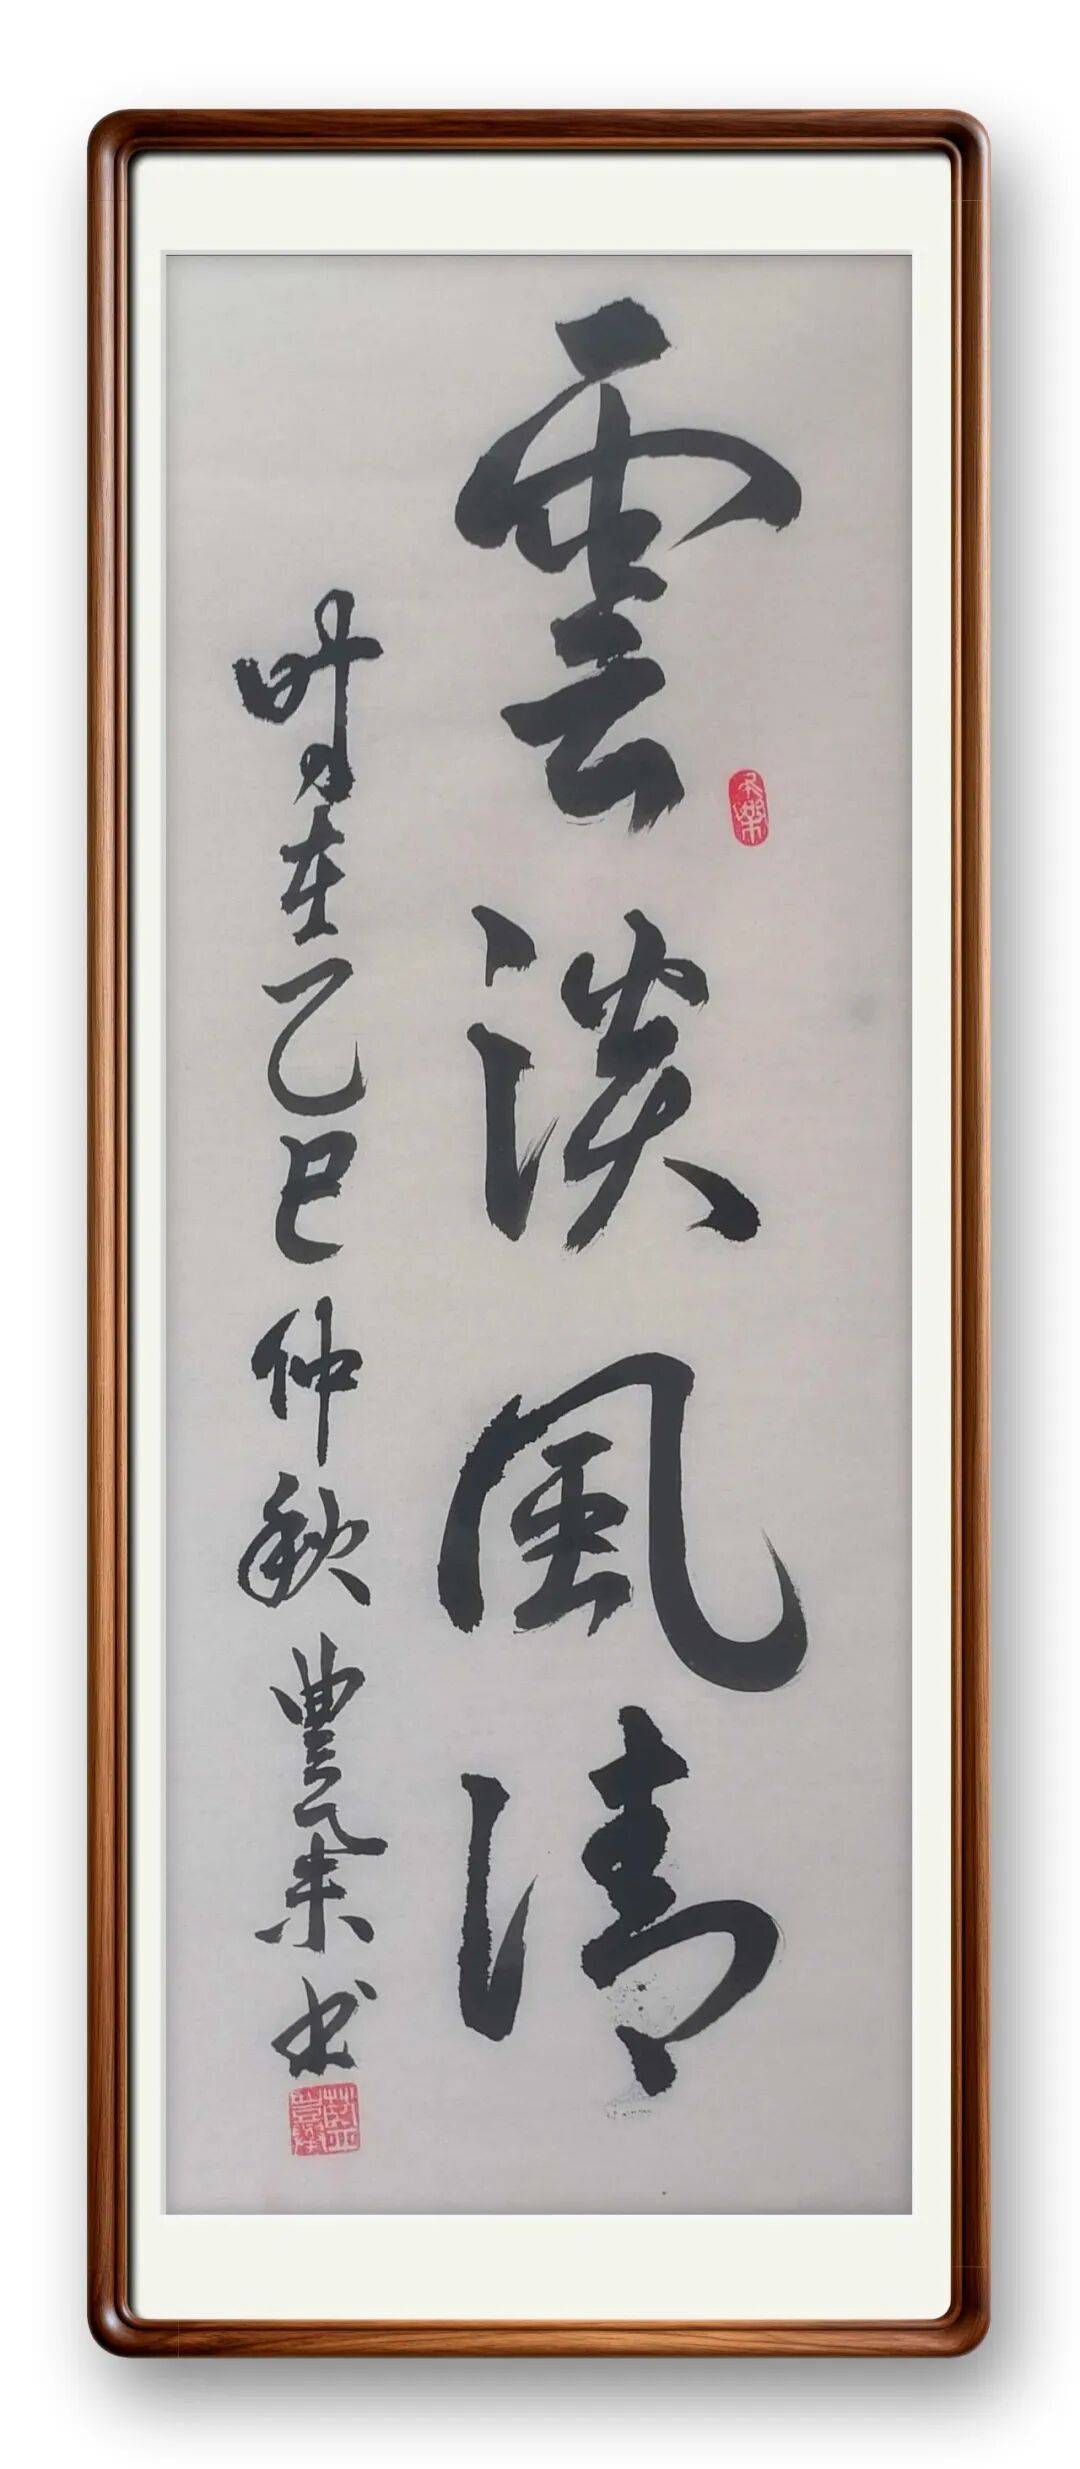 雲淡風清
时在乙巳仲秋豐泉书